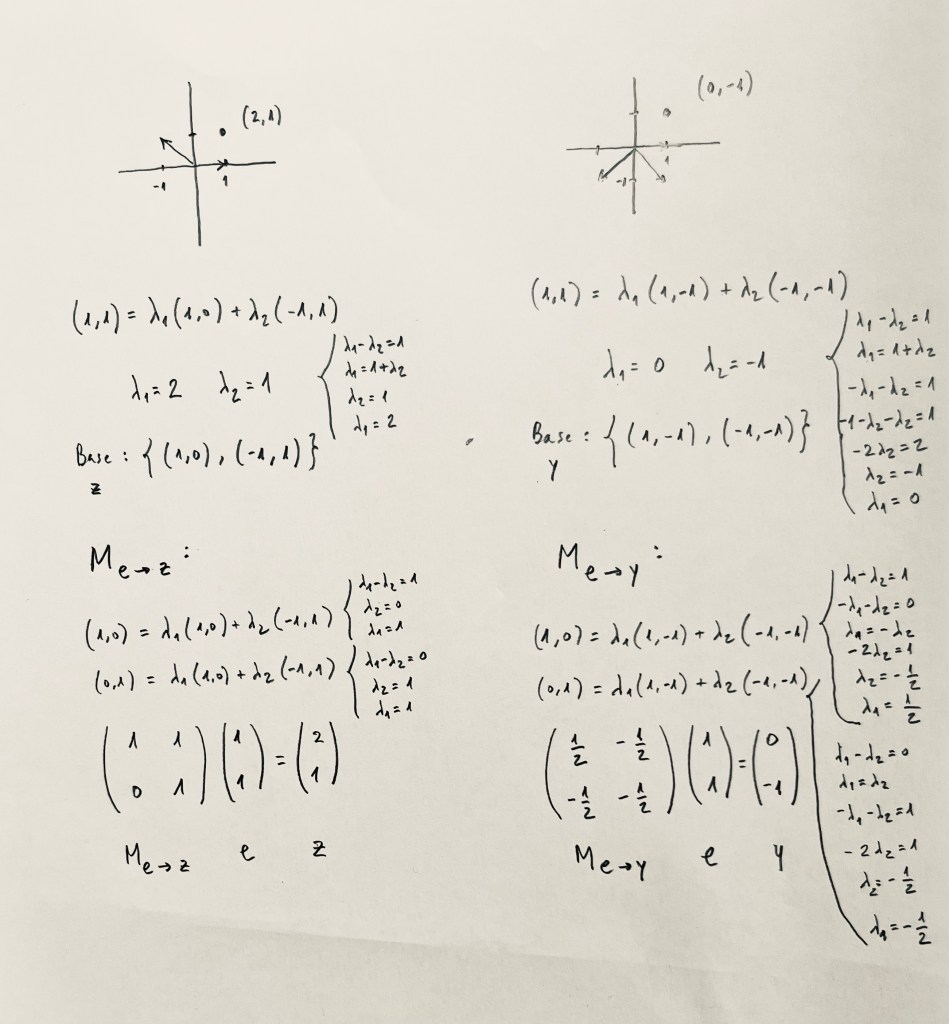 (2,1)
-1
1
(1,1) = λ₁(1,0) + λ₂(-1,1)
λ₁-λ₂=1
λ₁=1+λ₂
λ₂=1
λ₁=2
λ₁=2 λ₂=1
Base: {(1,0), (-1,1)}
z
M e→z :
(1,0) = λ₁(1,0) + λ₂(-1,1)
λ₁-λ₂=1
λ₂=0
λ₁=1
(0,1) = λ₁(1,0) + λ₂(-1,1)
λ₁-λ₂=0
λ₂=1
λ₁=1
(1 1) (1) = (2)
(0 1) (1) (1)
M e→z e z
(0,-1)
1
-1
(1,1) = λ₁(1,-1) + λ₂(-1,-1)
λ₁-λ₂=1
λ₁=1+λ₂
-λ₁-λ₂=1
-1-λ₂-λ₂=1
-2λ₂=2
λ₂=-1
λ₁=0
λ₁=0 λ₂=-1
Base: {(1,-1), (-1,-1)}
y
M e→y :
(1,0) = λ₁(1,-1) + λ₂(-1,-1)
λ₁-λ₂=1
-λ₁-λ₂=0
λ₁=-λ₂
-2λ₂=1
λ₂=-1/2
λ₁=1/2
(0,1) = λ₁(1,-1) + λ₂(-1,-1)
λ₁-λ₂=0
λ₁=λ₂
-λ₁-λ₂=1
-2λ₂=1
λ₂=-1/2
λ₁=-1/2
(1/2 -1/2) (1) = (0)
(-1/2 -1/2) (1) (-1)
M e→y e y